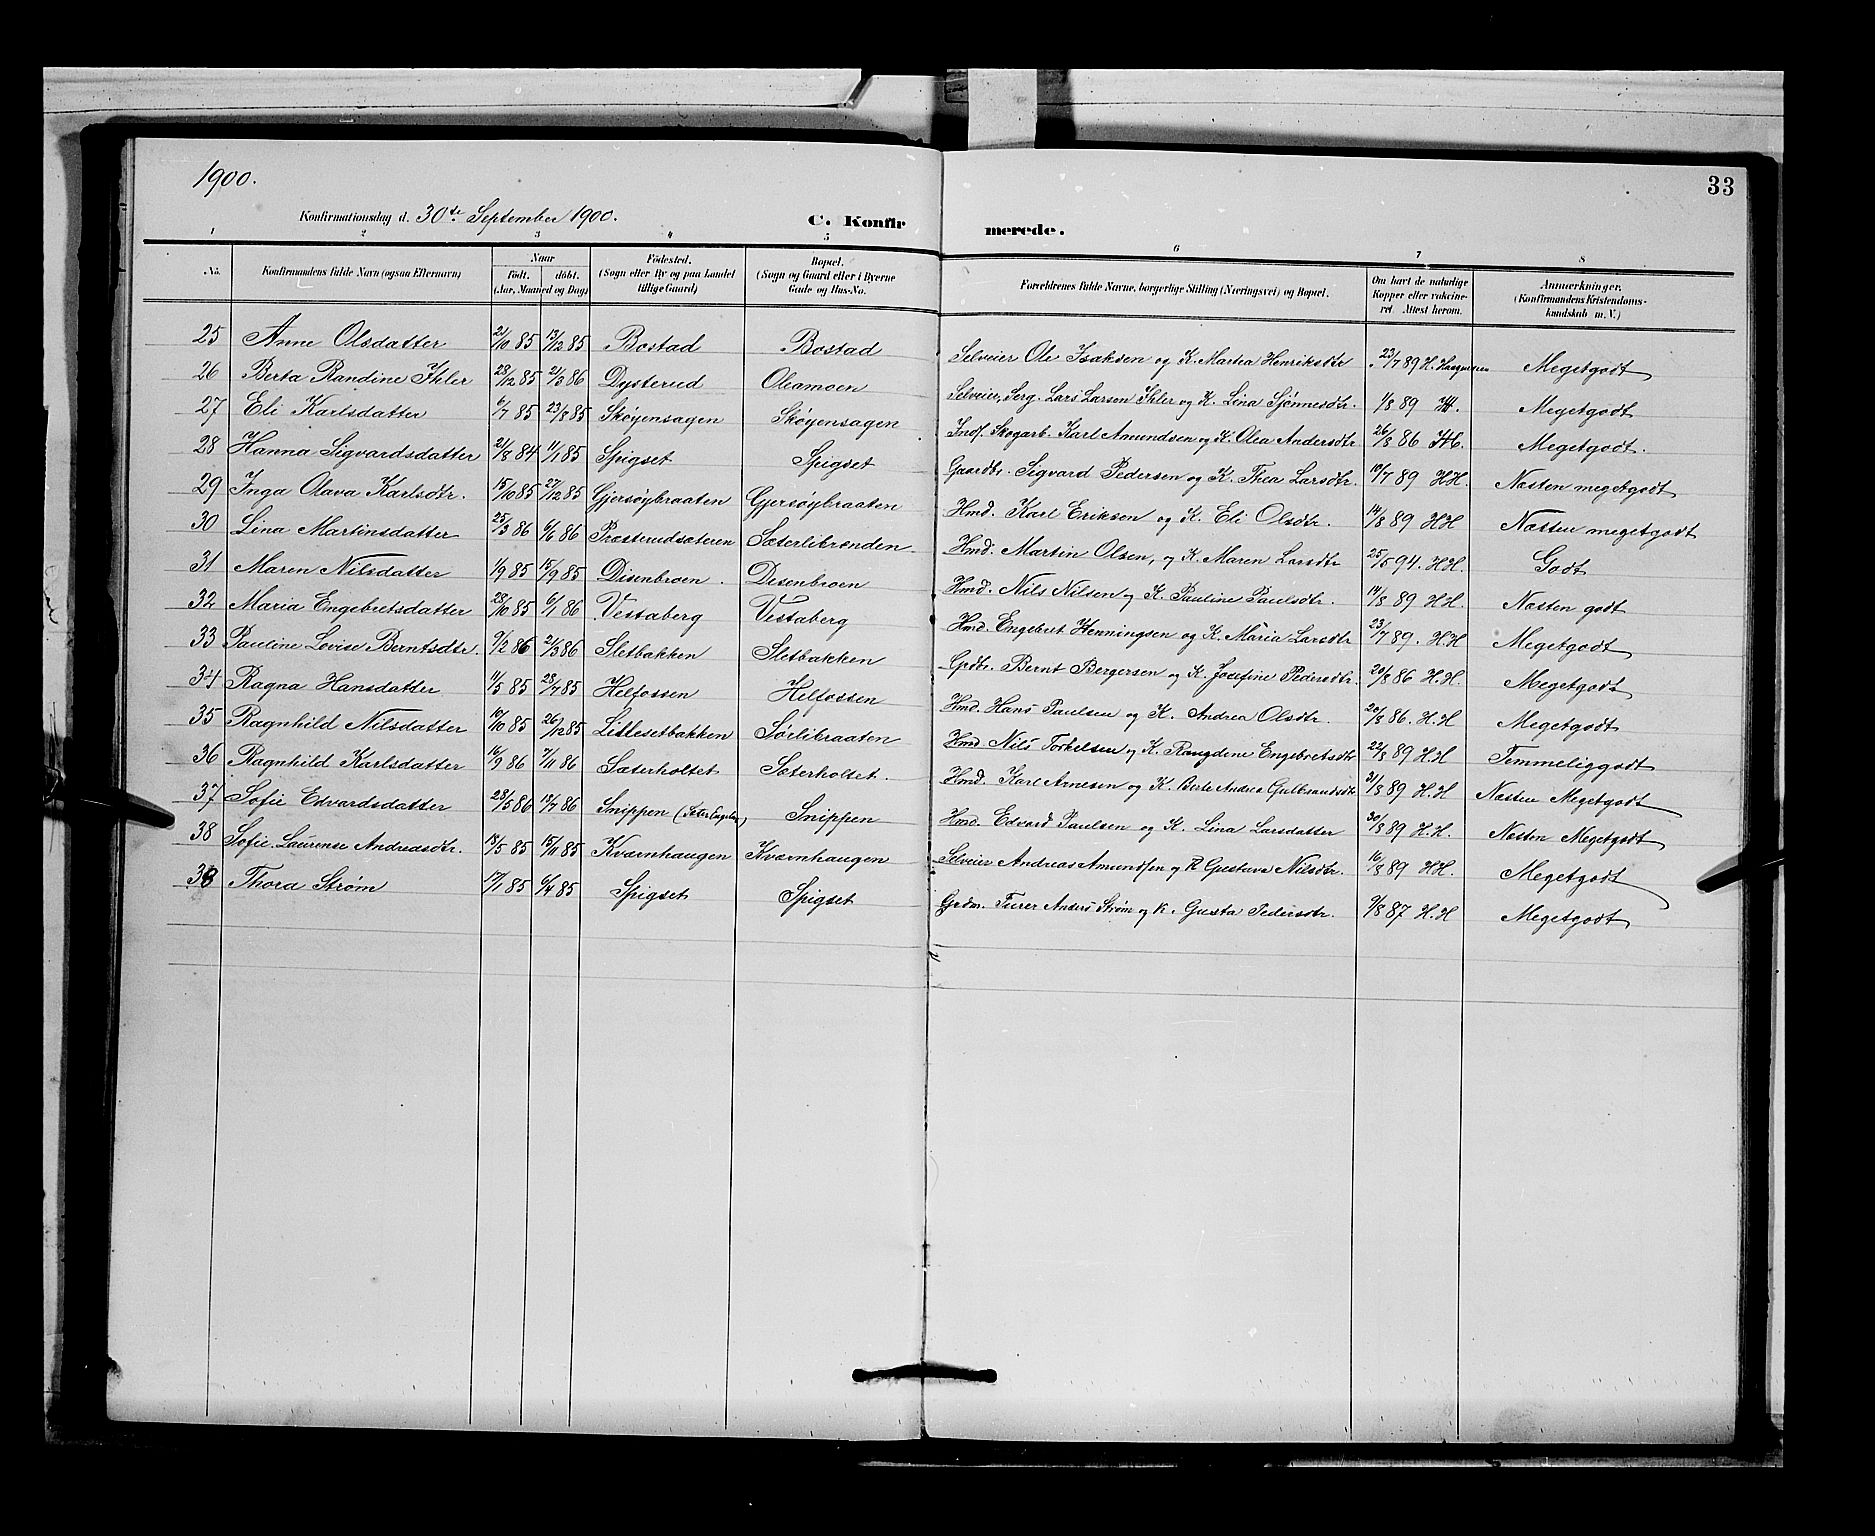 1900.
33
Konfirmationsdag d. 30te September 1900.
C. Konfir merede.
1 2 3 4 5 6 7 8
No. Konfirmandens fulde Navn (ogsaa Efternavn) Naar født. døbt. (Aar, Maaned og Dag) Fødested. (Sogn eller By og paa Landet tillige Gaard) Bopæl. (Sogn og Gaard eller i Byerne Gade og Hus-No. Forældrenes fulde Navne, borgerlige Stilling (Næringsvei) og Bopæl. Om havt de naturlige Kopper eller vakcineret. Attest herom. Anmærkninger. (Konfirmandens Kristendomskundskab m. V.)
25 Anne Olsdatter 21/10 85 13/12 85 Bostad Bostad Selveier Ole Isaksen og K. Martea Henriksdtr 23/7 89 H. Meget godt
26 Berta Randine Ihler 28/12 85 21/3 86 Dysterud Oleamoen Selveier, Serg. Lars Larsen Ihler og K. Lina Sjønnesdtr. 1/8 89 H. Megetgodt
27 Eli Karlsdatter 6/7 85 23/8 85 Skøyensagen Skøyensagen Inds. Skogarb. Karl Amundsen og K. Olea Andersdtr 26/8 86 H. Megetgodt.
28 Hanna Sigvardsdatter 21/8 84 1/1 85 Spigset Spigset Gaardbr. Sigvard Pedersen og K. Thea Larsdtr. 19/7 89 HH. Næsten megetgodt
29 Inga Olava Karlsdtr. 15/10 85 27/12 85 Gjersøybraaten Gjersøybraaten Hmd. Karl Eriksen og K. Eli Olsdtr. 14/8 89 HH Næsten megetgodt
30 Lina Martinsdatter 25/3 86 6/6 86 Præsterudsæteren Sæterlibrenden Hmd. Martin Olsen, og K. Maren Larsdtr 25/5 94. HH. Godt
31 Maren Nilsdatter 1/9 85 15/9 85 Disenbroen. Desenbroen Hmd. Nils Nilsen og K. Pauline Paulsdtr. 14/8 89 HH. Næsten godt
32 Maria Engebretsdatter 28/10 85 6/1 86 Vestaberg Vestaberg Hmd. Engebret Henningsen og K. Maria Larsdtr 23/7 89. H. H Megetgodt
33 Pauline Lovise Berntsdtr. 9/2 86 21/3 86 Sletbakken Sletbakken Gpdbr. Bernt Bergersen og K. Josefine Pedersdtr. 20/8 86 H. H. Megetgodt
34 Ragna Hansdatter 11/5 85 28/7 85 Helfossen Helfossen Hmd. Hans Paulsen og K. Andrea Olsdtr. 20/8 86. H. H Megetgodt
35 Ragnhild Nilsdatter 10/10 85 26/12 85 Litlesetbakken Sørlibraaten Hmd. Nils Torkelsen og K. Rangdene Engebretsdtr 22/8 89 H. H Temmeliggodt
36 Ragnhild Karlsdatter 16/9 86 7/11 86 Sæterholtet Sæterholtet. Hmd. Karl Arnesen og K. Berte Andrea Gulbrandsdtr 21/8 89 H. H Næsten Megetgodt
37 Sofie Edvardsdatter 28/5 86 18/7 86 Snippen Snippen Hmd. Edvard Paulsen og K. Lina Larsdatter 30/8 89 H. H. Næsten Megetgodt
38 Sofie Laurense Andreasdtr. 14/5 85 15/11 85 Kværnhaugen Kværnhaugen Selveier Andreas Amundsen og K Gustava Nilsdtr. 16/8 89 HH. Megetgodt
Thora Strøm 17/1 85 6/4 85 Spigset Spigset Grdm. Furer Anders Strøm og K. Gusta Pedersdtr. 9/8 87 H. H Megetgodt